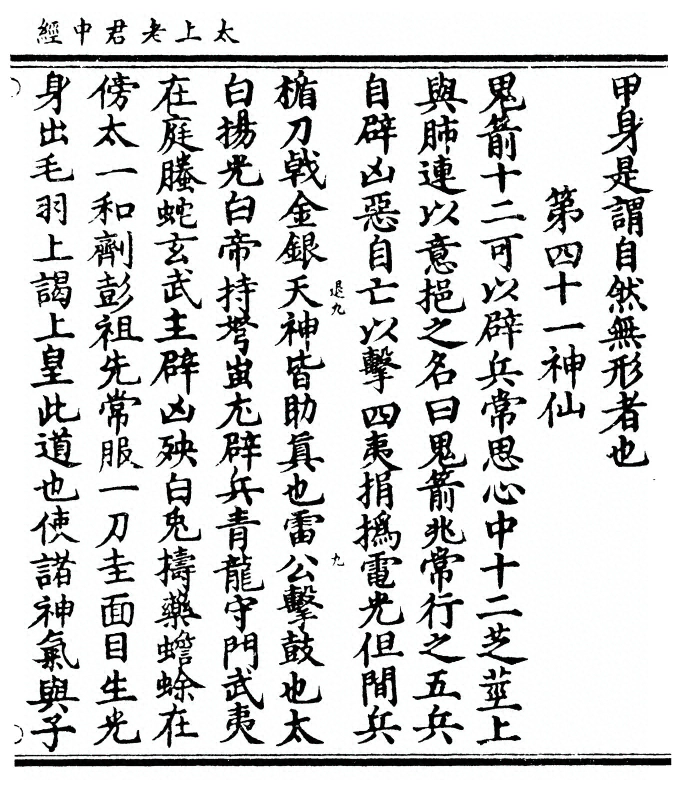 太上老君中經
甲身是謂自然無形者也
第四十一神仙
鬼箭十二可以辟兵常思心中十二芝莖上
與肺連以意挹之名曰鬼箭兆常行之五兵
自辟凶惡自亡以擊四夷捐撝電光但聞兵
退九
九
楯刀戟金銀天神皆助真也雷公擊鼓也太
白揚光白帝持弩蚩尤辟兵青龍守門武夷
在庭螣蛇玄武主辟凶殃白兔擣藥蟾蜍在
傍太一和劑彭祖先常服一刀圭面目生光
身出毛羽上謁上皇此道也使諸神氣與子